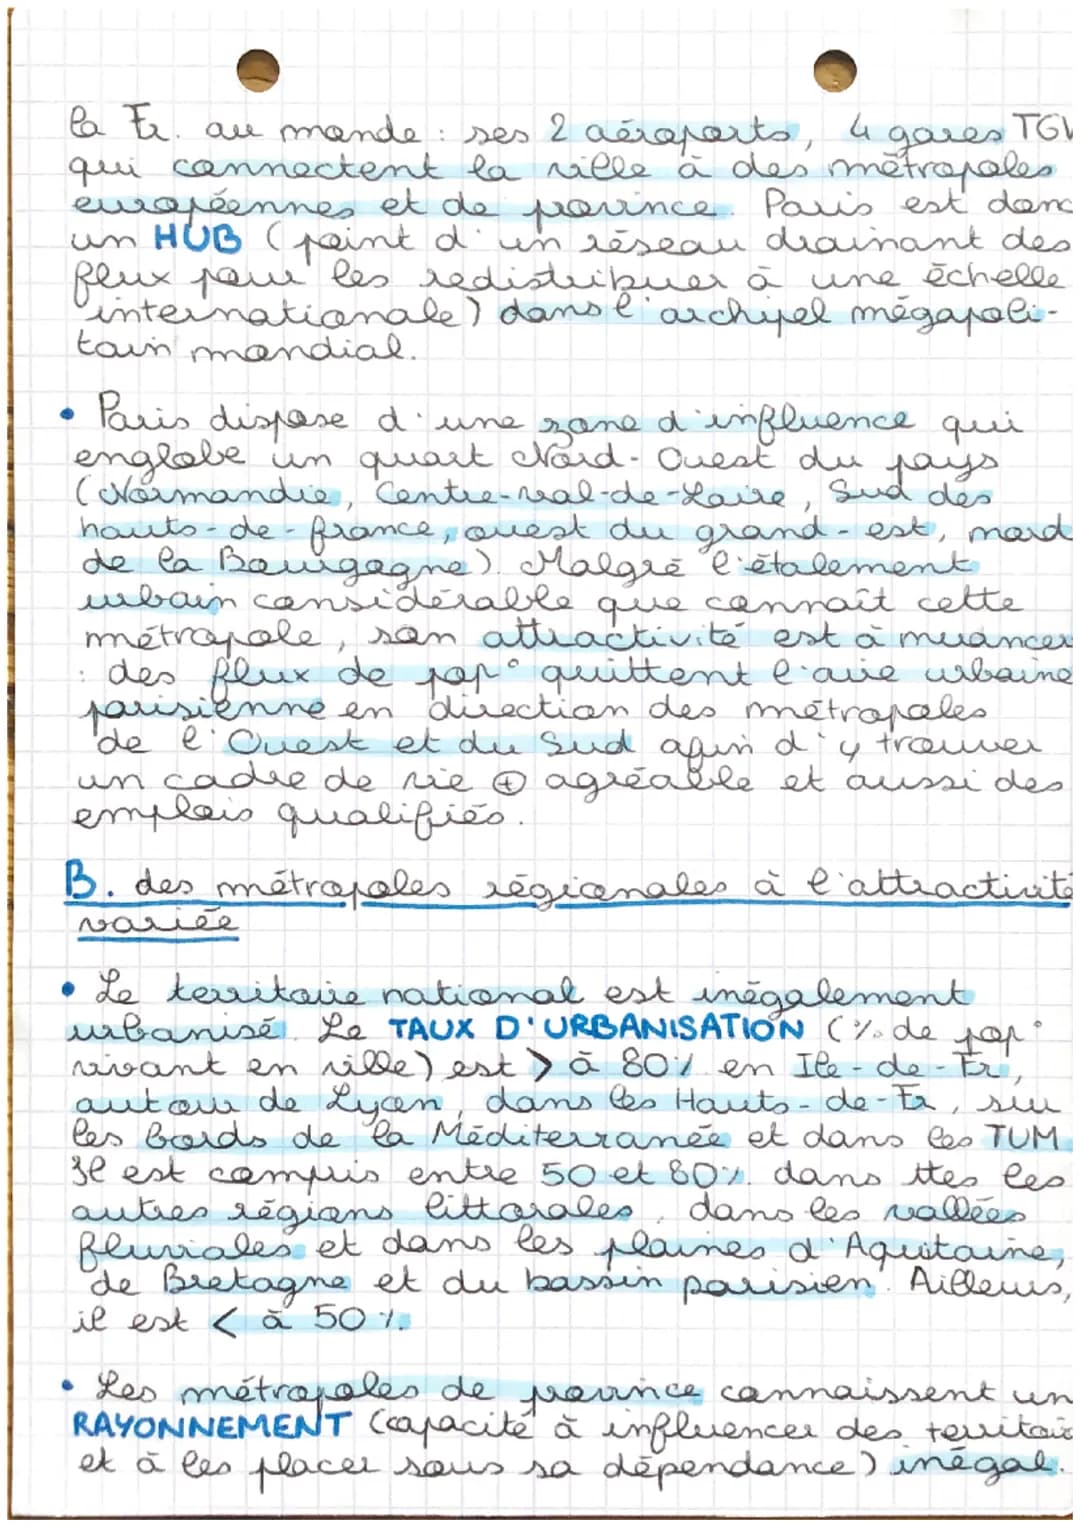 la Fr. au monde : ses 2 aéroports, 4 gares TGV
qui connectent la ville à des métropoles
européennes et de province. Paris est donc
un HUB (point d'un réseau drainant des
flux pour les redistribuer à une échelle
internationale) dans l'archipel mégapoli-
tain mondial.
• Paris dispose d'une zone d'influence qui
englobe un quart Nord-Ouest du pays
(Normandie, Centre-val-de-Loire, Sud des
hauts-de-france, ouest du grand-est, nord
de la Bourgogne). Malgré l'étalement
urbain considérable que connaît cette
métropole, son attractivité est à nuancer
: des flux de pop° quittent l'aire urbaine
parisienne en direction des métropoles
de l'Ouest et du Sud afin d'y trouver
un cadre de vie ⊕ agréable et aussi des
emplois qualifiés.
B. des métropoles régionales à l'attractivité
variée
• Le territoire national est inégalement
urbanisé. Le TAUX D'URBANISATION (% de pop°
vivant en ville) est > à 80% en Ile-de-Fr,
autour de Lyon, dans les Hauts-de-Fr, sur
les bords de la Méditerranée et dans les TUM.
Il est compris entre 50 et 80% dans ttes les
autres régions littorales, dans les vallées
fluviales et dans les plaines d'Aquitaine,
de Bretagne et du bassin parisien. Ailleurs,
il est < à 50%.
• Les métropoles de province connaissent un
RAYONNEMENT (capacité à influencer des territoir
et à les placer sous sa dépendance) inégal.